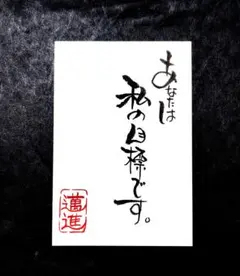 あなたは
私の目標です。
邁進